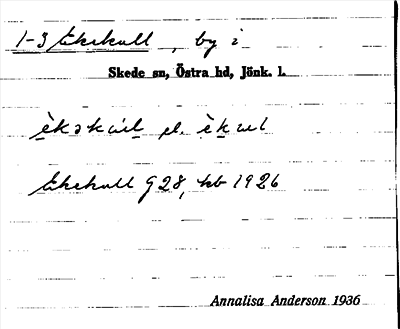 1-3 Ekekull, by i
Skede sn, Östra hd, Jönk. l.
èkəkul el. èkul
Ekekull G28, kb 1926
Annalisa Anderson 1936